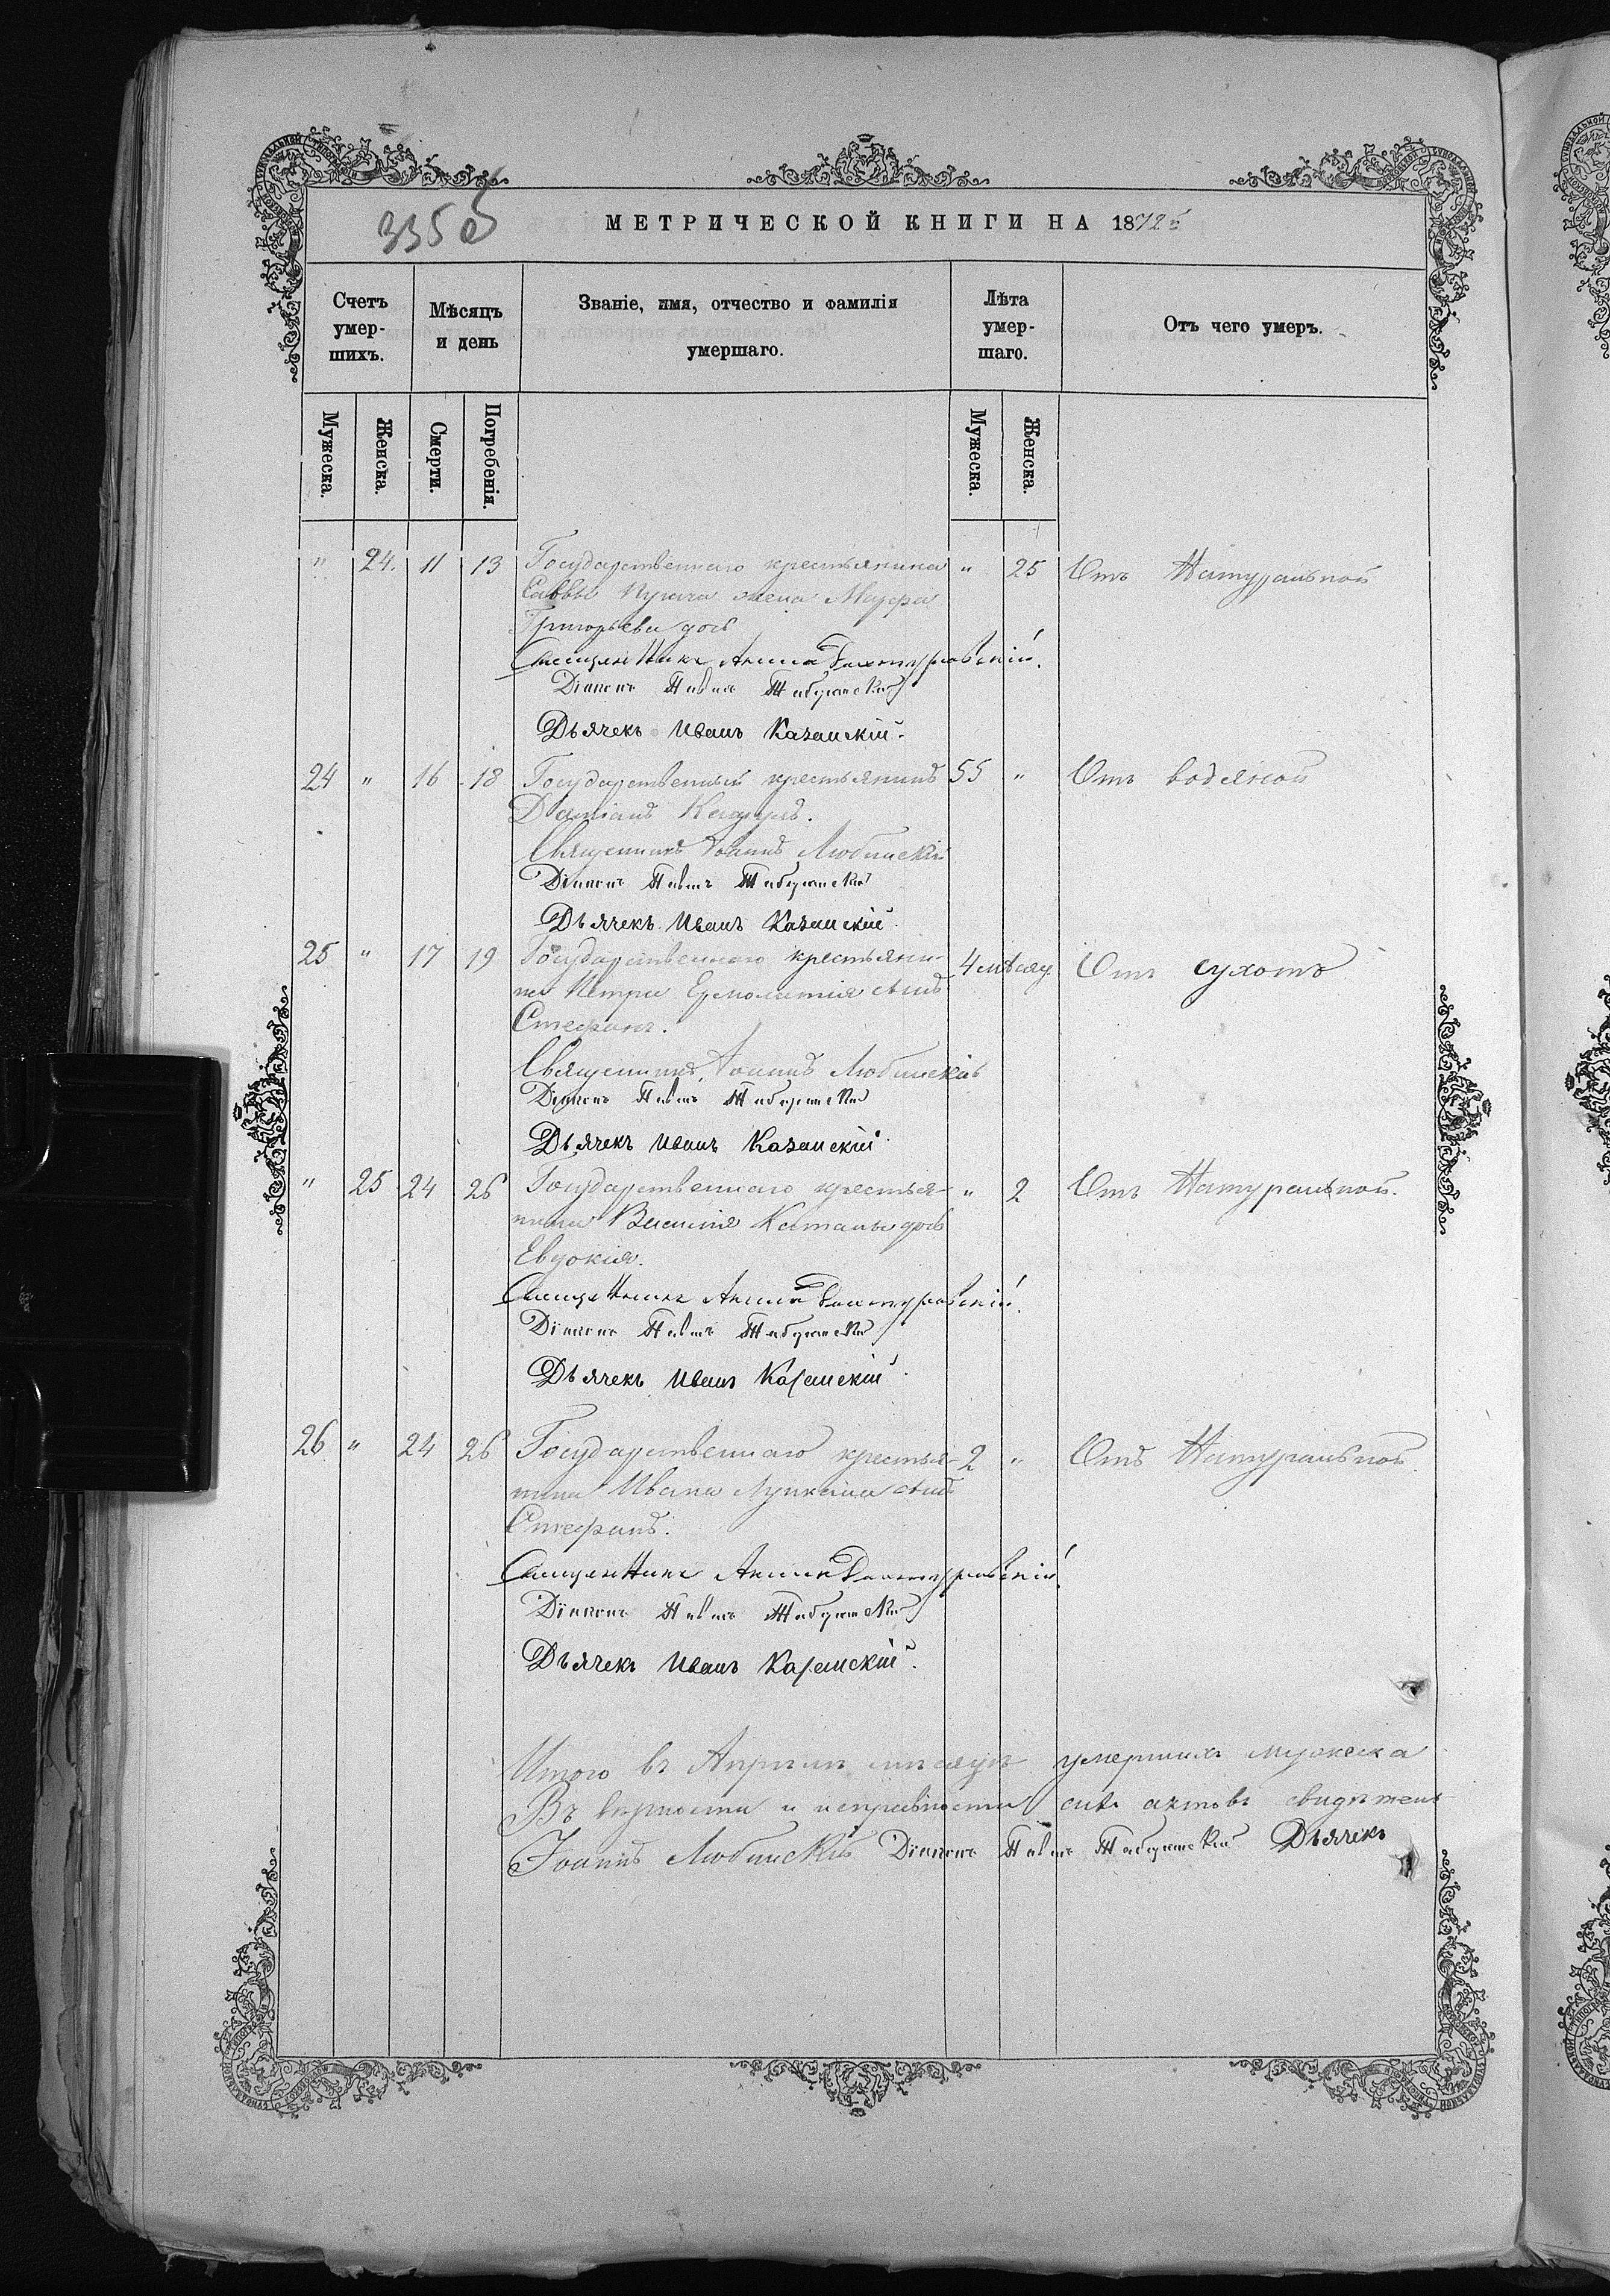 335 об
МЕТРИЧЕСКОЙ КНИГИ НА 1872
Счетъ умерших.
Мѣсяцъ и день
Званіе, имя, отчество и фамилія умершаго.
Лѣта умершаго.
Отъ чего умеръ.
Мужеска.
Женска.
Смерти.
Погребенія.
Мужеска.
Женска.
" 24. 11 13 Государственнаго крестьянина " 25 Отъ Натуральной
Саввы Пугача жена Марфа
Григорьева дочь
Священникъ
Діаконъ Павелъ
Дьячекъ Иванъ Казанскій.
24 " 16 18 Государственный крестьянинъ 55 " Отъ водяной
Даміанъ
Священникъ Іоаннъ Любинскій
Діаконъ Павелъ
Дьячекъ Иванъ Казанскій.
25 " 17 19 Государственнаго крестьяни- 4 мѣсяц. Отъ сухотъ
на Петра сынъ
Стефанъ.
Священникъ Іоаннъ Любинскій
Діаконъ Павелъ
Дьячекъ Иванъ Казанскій.
" 25 24 26 Государственнаго крестья- " 2 Отъ Натуральной.
нина Василія Катаны дочь
Евдокія.
Священникъ
Діаконъ Павелъ
Дьячекъ Иванъ Казанскій.
26 " 24 26 Государственнаго крестья- 2 " Отъ Натуральной.
нина Ивана сынъ
Стефанъ.
Священникъ
Діаконъ Павелъ
Дьячекъ Иванъ Казанскій.
Итого въ Апрѣлѣ мѣсяцѣ умершихъ мужеска
Въ вѣрности и исправности сихъ актовъ свидѣтель
Іоаннъ Любинскій Діаконъ Павелъ Дьячекъ